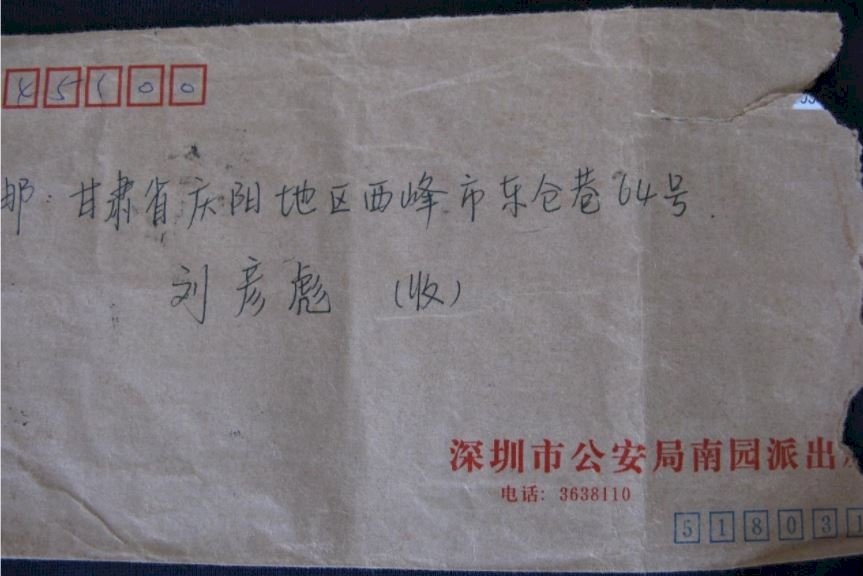 45100
邮：甘肃省庆阳地区西峰市东仓巷64号.
刘彦彪 （收）
深圳市公安局南园派出
电话：3638110
518031